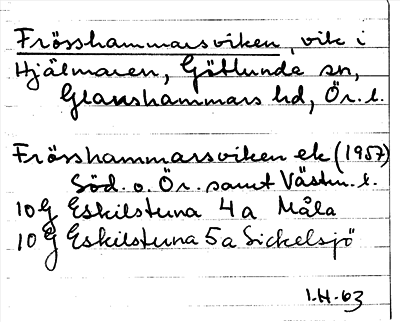 Frösshammarsviken, vik i
Hjälmaren, Götlunda sn,
Glanshammars hd, Ör. l.
Frösshammarsviken ek (1957)
Söd. o. Ör. samt Västm. l.
10G Eskilstuna 4a Måla
10G Eskilstuna 5a Sickelsjö
I.H. 63